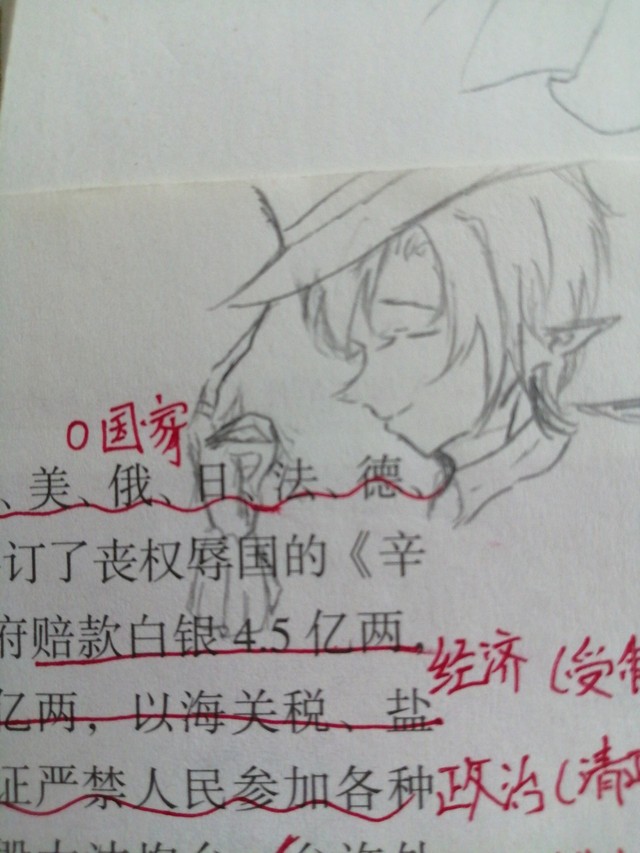 O国家
、美、俄、日、法、德、
订了丧权辱国的《辛
府赔款白银4.5亿两,
经济(受管
亿两,以海关税、盐
证严禁人民参加各种
政治(清